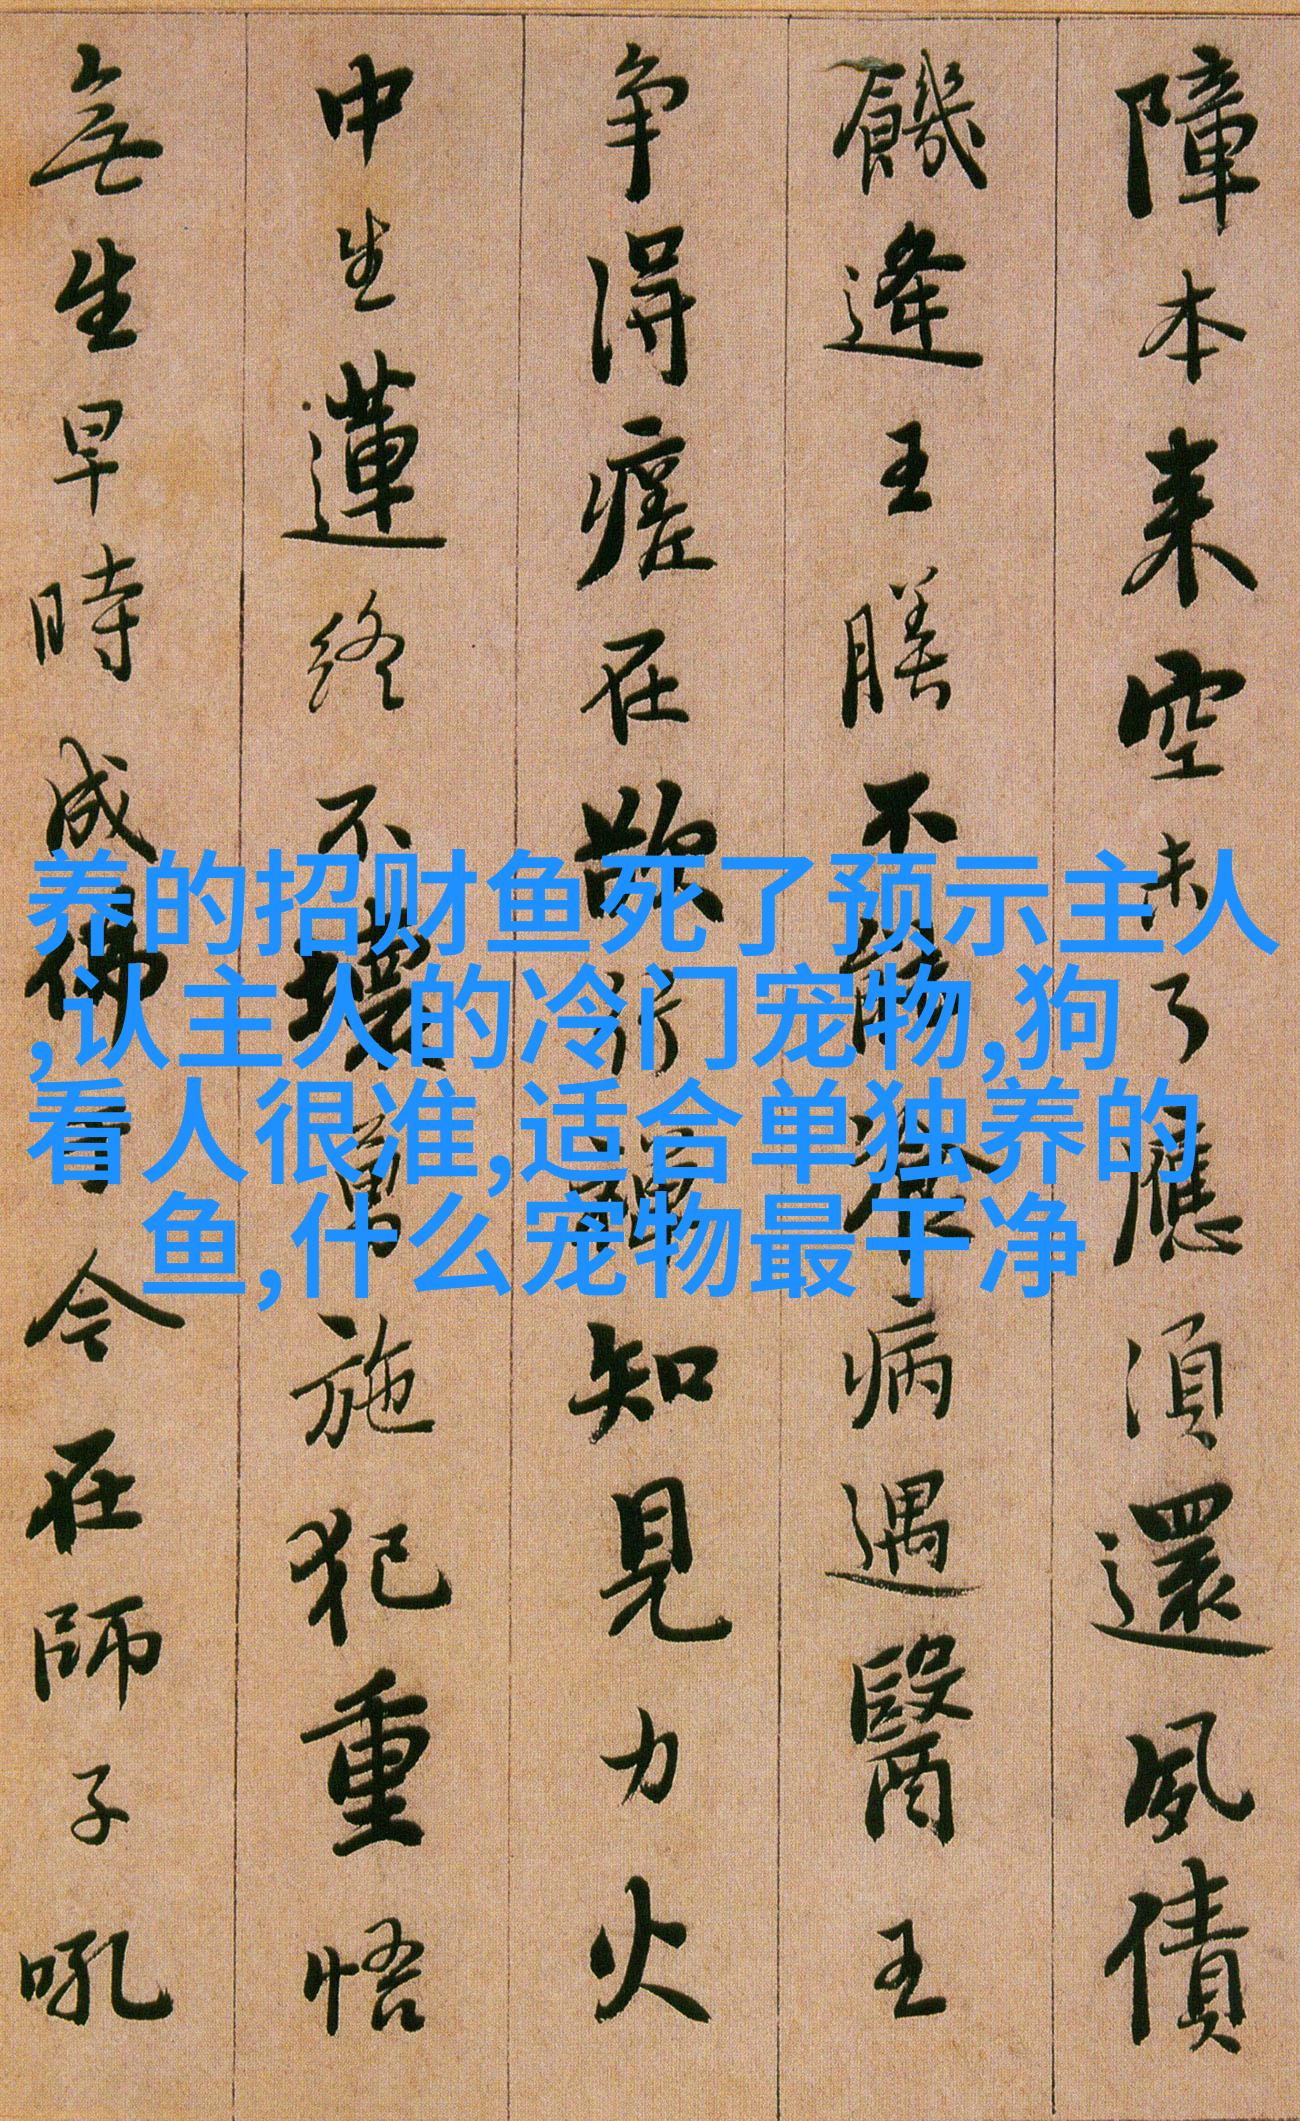 障本来空未了應須還夙債
饑逢王膳不能飡病遇醫王
争得瘥在欲行禪知見力火
中生蓮終不壞勇施犯重悟
無生早時成佛于今在師子吼
养的招财鱼死了预示主人
,认主人的冷门宠物,狗
看人很准,适合单独养的
鱼,什么宠物最干净